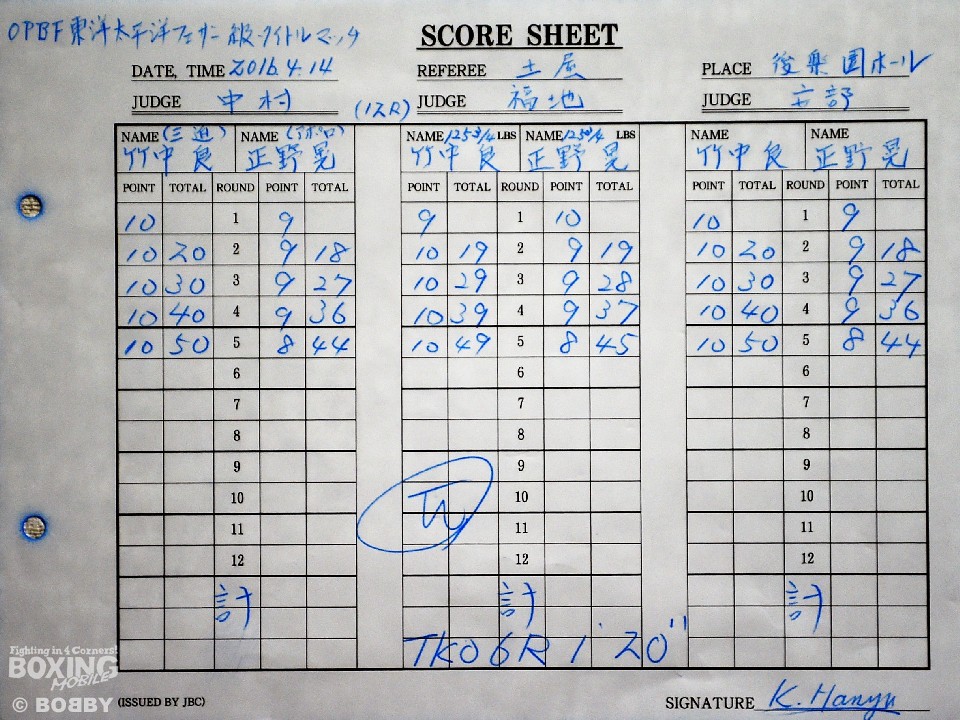 OPBF 東洋太平洋フェザー級タイトルマッチ
SCORE SHEET
DATE, TIME 2016.4.14 REFEREE 土屋 PLACE 後楽園ホール
JUDGE 中村 (12R) JUDGE 福地 JUDGE
NAME (三迫) NAME (アポロ) NAME 125 3/4 LBS NAME LBS NAME NAME
竹中良 正野晃 竹中良 正野晃 竹中良 正野晃
POINT TOTAL ROUND POINT TOTAL POINT TOTAL ROUND POINT TOTAL POINT TOTAL ROUND POINT TOTAL
10 1 9 9 1 10 10 1 9
10 20 2 9 18 10 19 2 9 19 10 20 2 9 18
10 30 3 9 27 10 29 3 9 28 10 30 3 9 27
10 40 4 9 36 10 39 4 9 37 10 40 4 9 36
10 50 5 8 44 10 49 5 8 45 10 50 5 8 44
6 6 6
7 7 7
8 8 8
9 9 9
10 10 10
W
11 11 11
12 12 12
計 計 計
TKO 6R 1' 20''
Fighting in 4 Corners!
BOXING
MOBILE
© BOBBY
(ISSUED BY JBC) SIGNATURE K. Hanyu